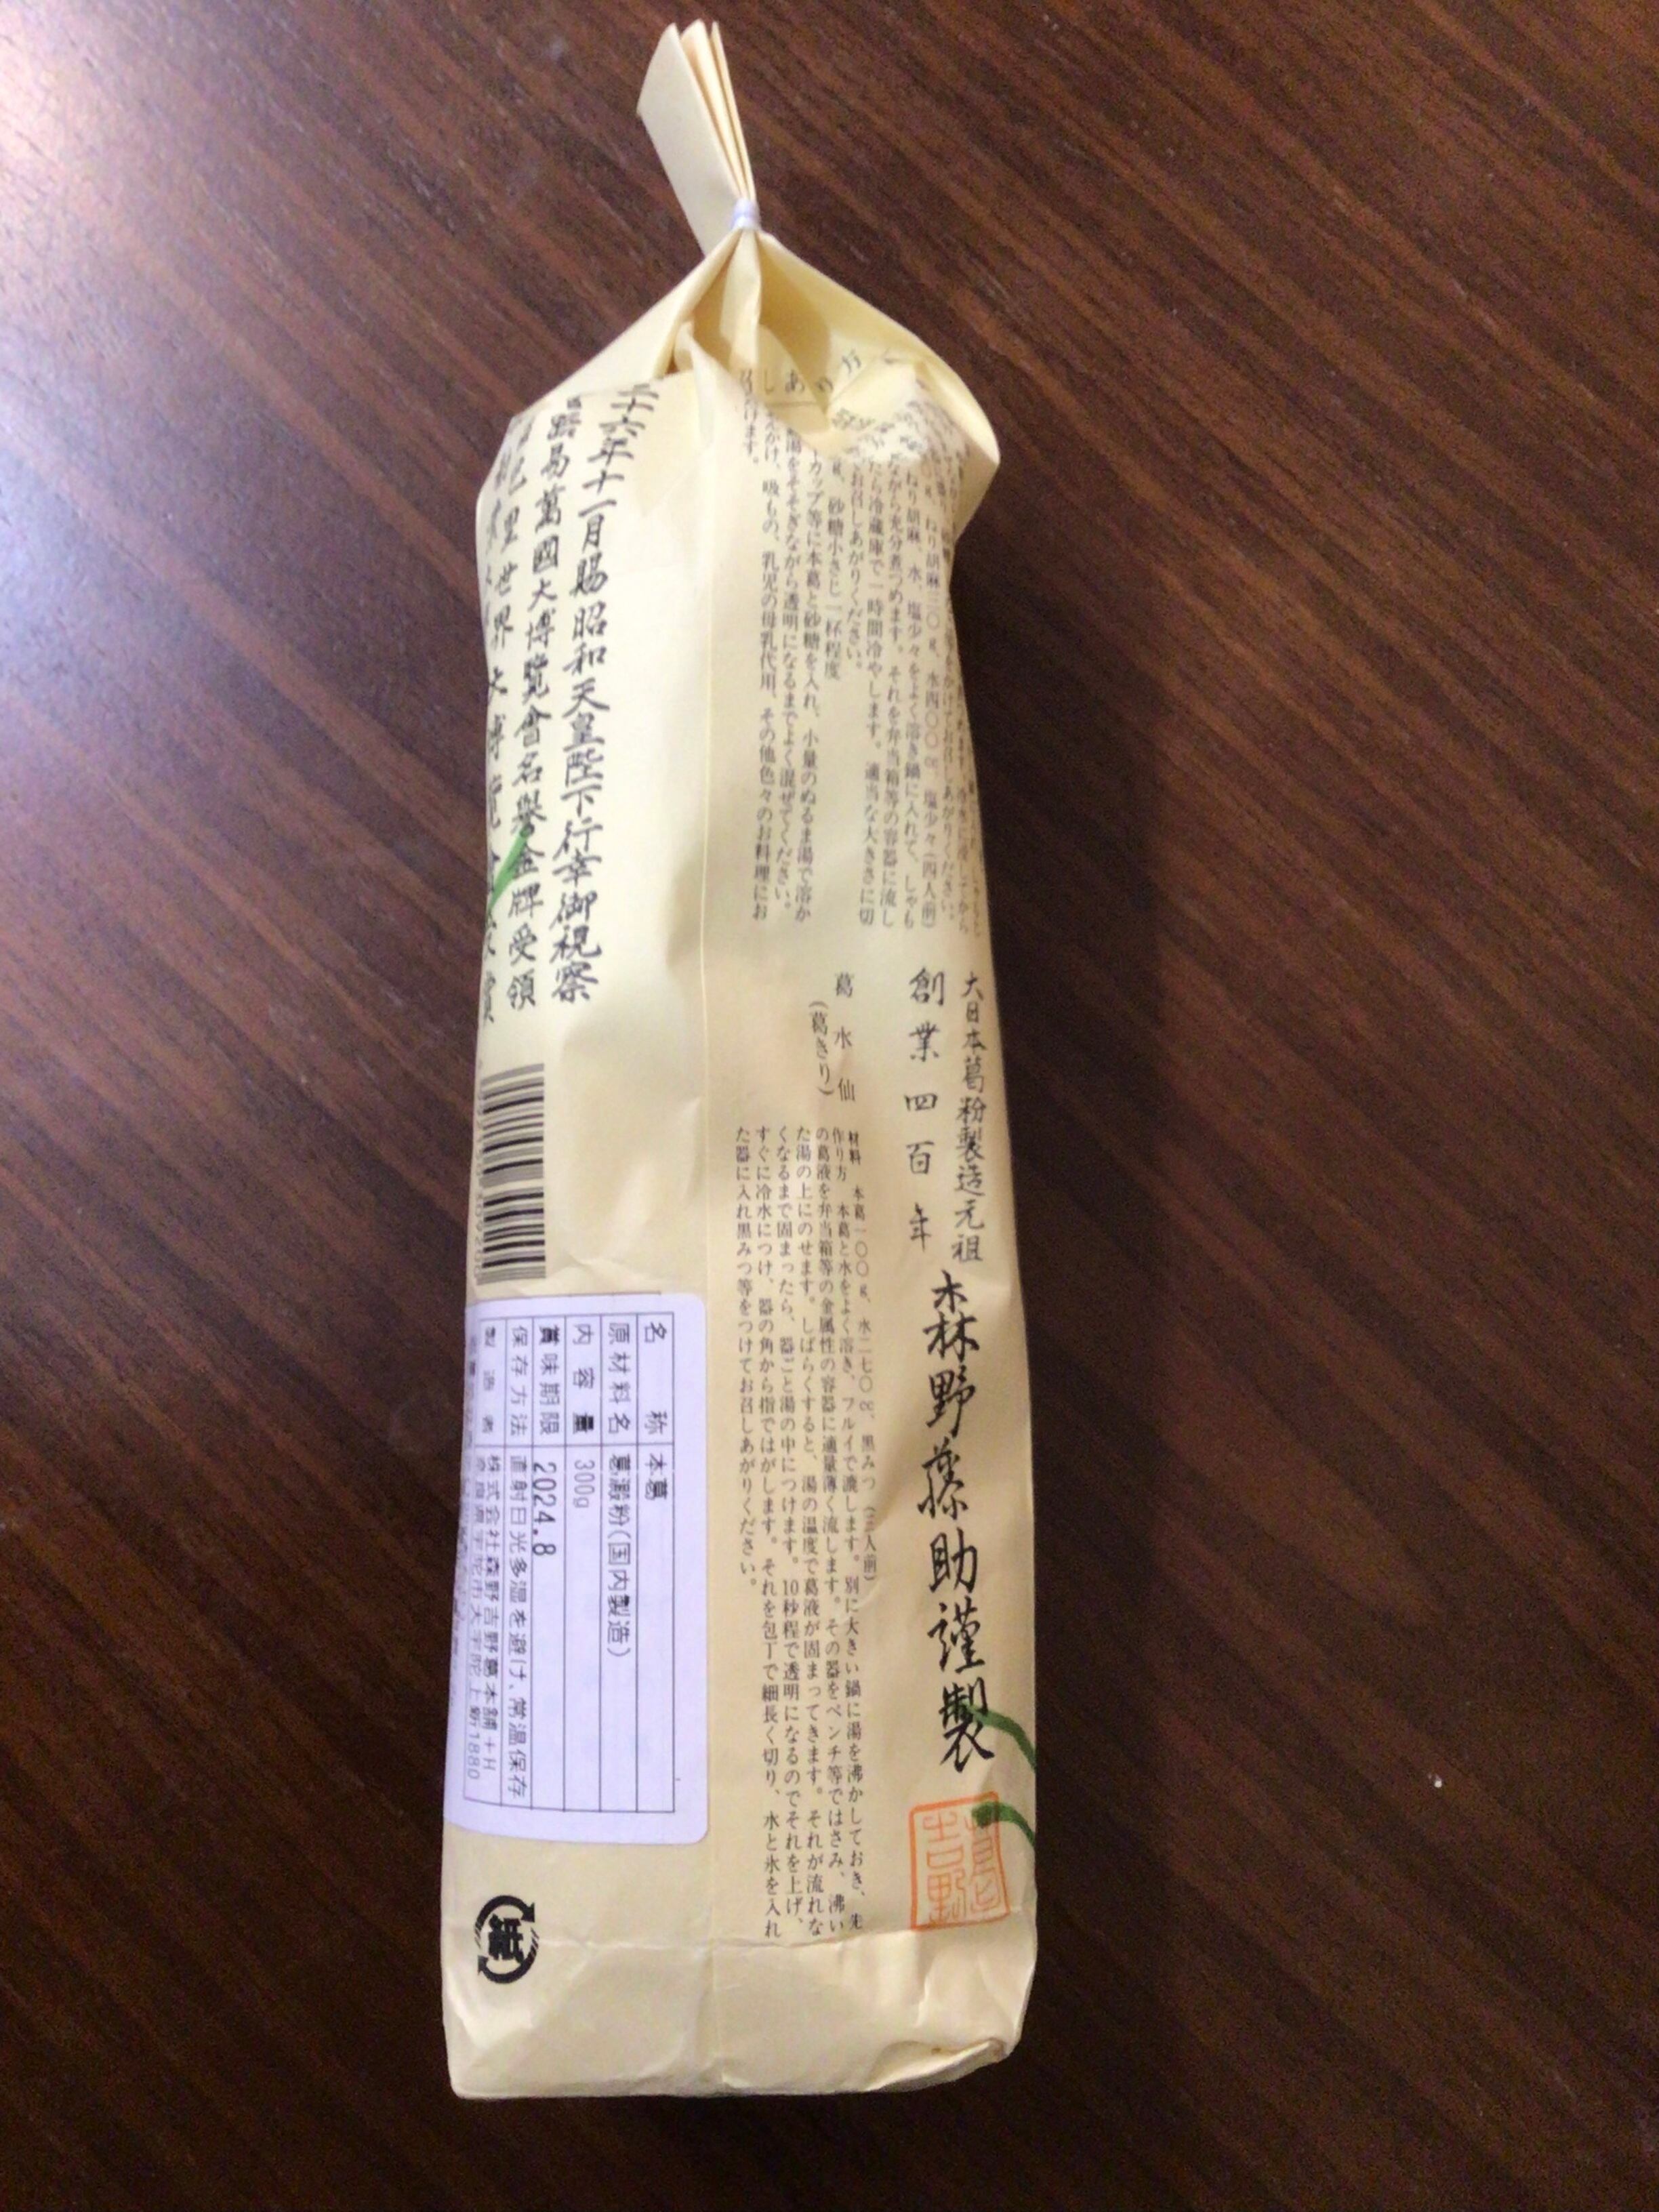 大日本葛粉製造元祖
創業四百年
森野藤助謹製
吉野
g、ねり胡麻三〇g、水四〇〇cc、塩少々(四人前)
ねり胡麻、水、塩少々をよく溶き鍋に入れて、しゃも
ながら充分煮つめます。それを弁当箱等の容器に流し
たら冷蔵庫で一時間冷やします。適当な大きさに切
お召しあがりください。
g、砂糖小さじ一杯程度
カップ等に本葛と砂糖を入れ、小量のぬるま湯で溶か
湯をそそぎながら透明になるまでよく混ぜてください。
かけ、吸もの、乳児の母乳代用、その他色々のお料理にお
けます。
葛水仙
(葛きり)
材料 本葛一〇〇g、水二七〇cc、黒みつ(三人前)
作り方 本葛と水をよく溶き、フルイで漉します。別に大きい鍋に湯を沸かしておき、先
の葛液を弁当箱等の金属性の容器に適量薄く流します。その器をペンチ等ではさみ、沸い
た湯の上にのせます。しばらくすると、湯の温度で葛液が固まってきます。それが流れな
くなるまで固まったら、器ごと湯の中につけます。10秒程で透明になるのでそれを上げ、
すぐに冷水につけ、器の角から指ではがします。それを包丁で細長く切り、水と氷を入れ
た器に入れ黒みつ等をつけてお召しあがりください。
二十六年十一月賜昭和天皇陛下行幸御視察
路易萬國大博覽會名譽金牌受領
巴里世界大博覽會
名称 本葛
原材料名 葛澱粉(国内製造)
内容量 300g
賞味期限 2024.8
保存方法 直射日光多湿を避け、常温保存
製造者 株式会社森野吉野葛本舗+H
奈良県宇陀市大宇陀上新1880